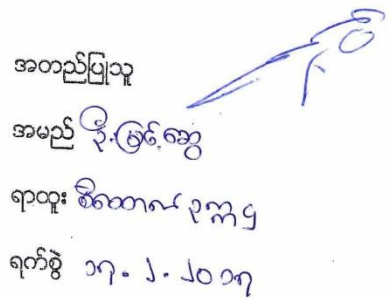 အတည်ပြုသူ
အမည် ဦးမြင့်ဆွေ
ရာထူး ဥက္ကဌ
ရက်စွဲ ၁၇.၂.၂၀၁၇